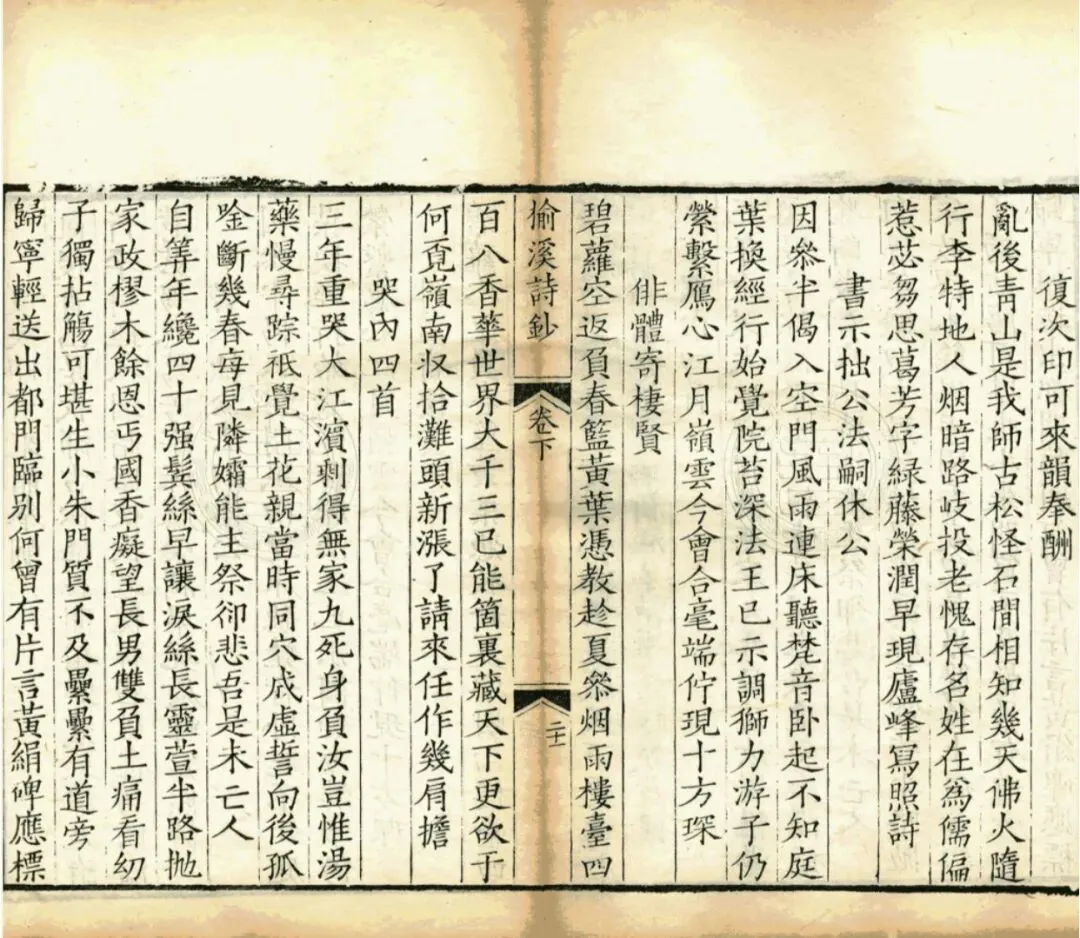 復次印可來韻奉酬
亂後青山是我師古松怪石間相知幾天佛火隨
行李特地人烟暗路岐投老愧存名姓在為儒偏
惹苾芻思葛芳字緑藤榮潤早現廬峰寫照詩
書示拙公法嗣休公
因叅半偈入空門風雨連床聽梵音卧起不知庭
葉換經行始覺院苔深法王已示調獅力游子仍
縈繫鴈心江月嶺雲今會合毫端佇現十方琛
俳體寄棲賢
碧蘿空返負春籃黃葉憑教趁夏叅烟雨樓臺四
榆溪詩鈔
卷下
二十二
百八香華世界大千三已能箇裏藏天下更欲于
何覔嶺南収拾灘頭新漲了請來任作幾肩擔
哭內四首
三年重哭大江濱剩得無家九死身負汝豈惟湯
藥慢尋踪祇覺土花親當時同穴成虛誓向後孤
唫斷幾春每見隣孀能主祭卻悲吾是未亡人
自筭年纔四十强鬂絲早讓淚絲長靈萱半路抛
家政樛木餘恩丐國香癡望長男雙負土痛看幼
子獨拈觴可堪生小朱門質不及纍纍有道旁
歸寧輕送出都門臨别何曾有片言黃絹碑應標